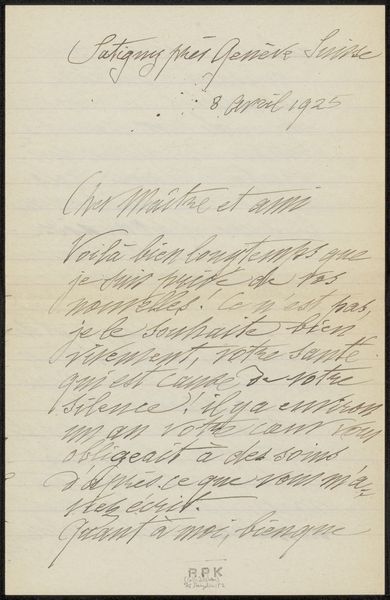 Satigny près Genève Suisse
8 avril 1925
Cher Maître et ami
Voilà bien longtemps que
je suis privé de vos
nouvelles! Ce n'est pas,
je le souhaite bien
vivement, votre santé
qui est cause de votre
silence! il y a environ
un an votre cœur vous
obligeait à des soins
d'après ce que vous m'a-
viez écrit.
Quant à moi, bien que
R.P.K